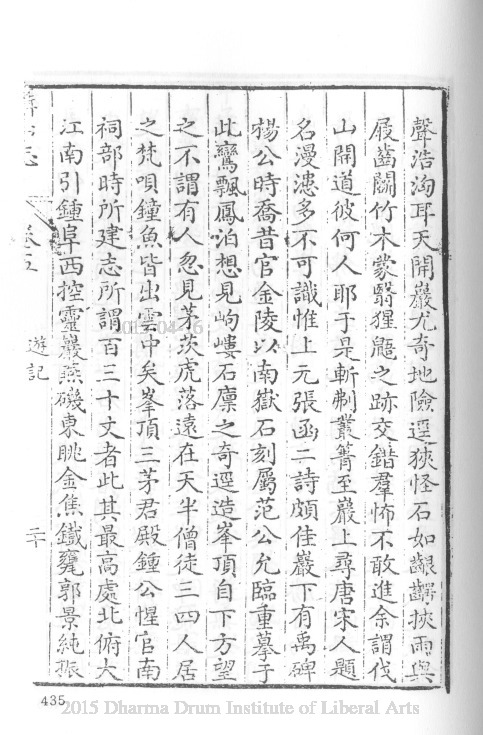 聲浩洶耳天開巖尤奇地險逕狹怪石如齦齶挾雨與
屐齒鬬竹木蒙翳猩鼯之跡交錯羣怖不敢進余謂伐
山開道彼何人耶于是斬刜叢箐至巖上尋唐宋人題
名漫漶多不可識惟上元張函二詩頗佳巖下有禹碑
楊公時喬昔官金陵以南嶽石刻屬范公允臨重摹于
此鸞飄鳳泊想見岣嶁石廩之奇逕造峯頂自下方望
之不謂有人忽見茅茨虎落遠在天半僧徒三四人居
之梵唄鐘魚皆出雲中矣峯頂三茅君殿鍾公惺官南
祠部時所建志所謂百三十丈者此其最高處北俯大
江南引鍾阜西控靈巖燕磯東眺金焦鐵甕郭景純振
卷五
遊記
二十
435
2015 Dharma Drum Institute of Liberal Arts